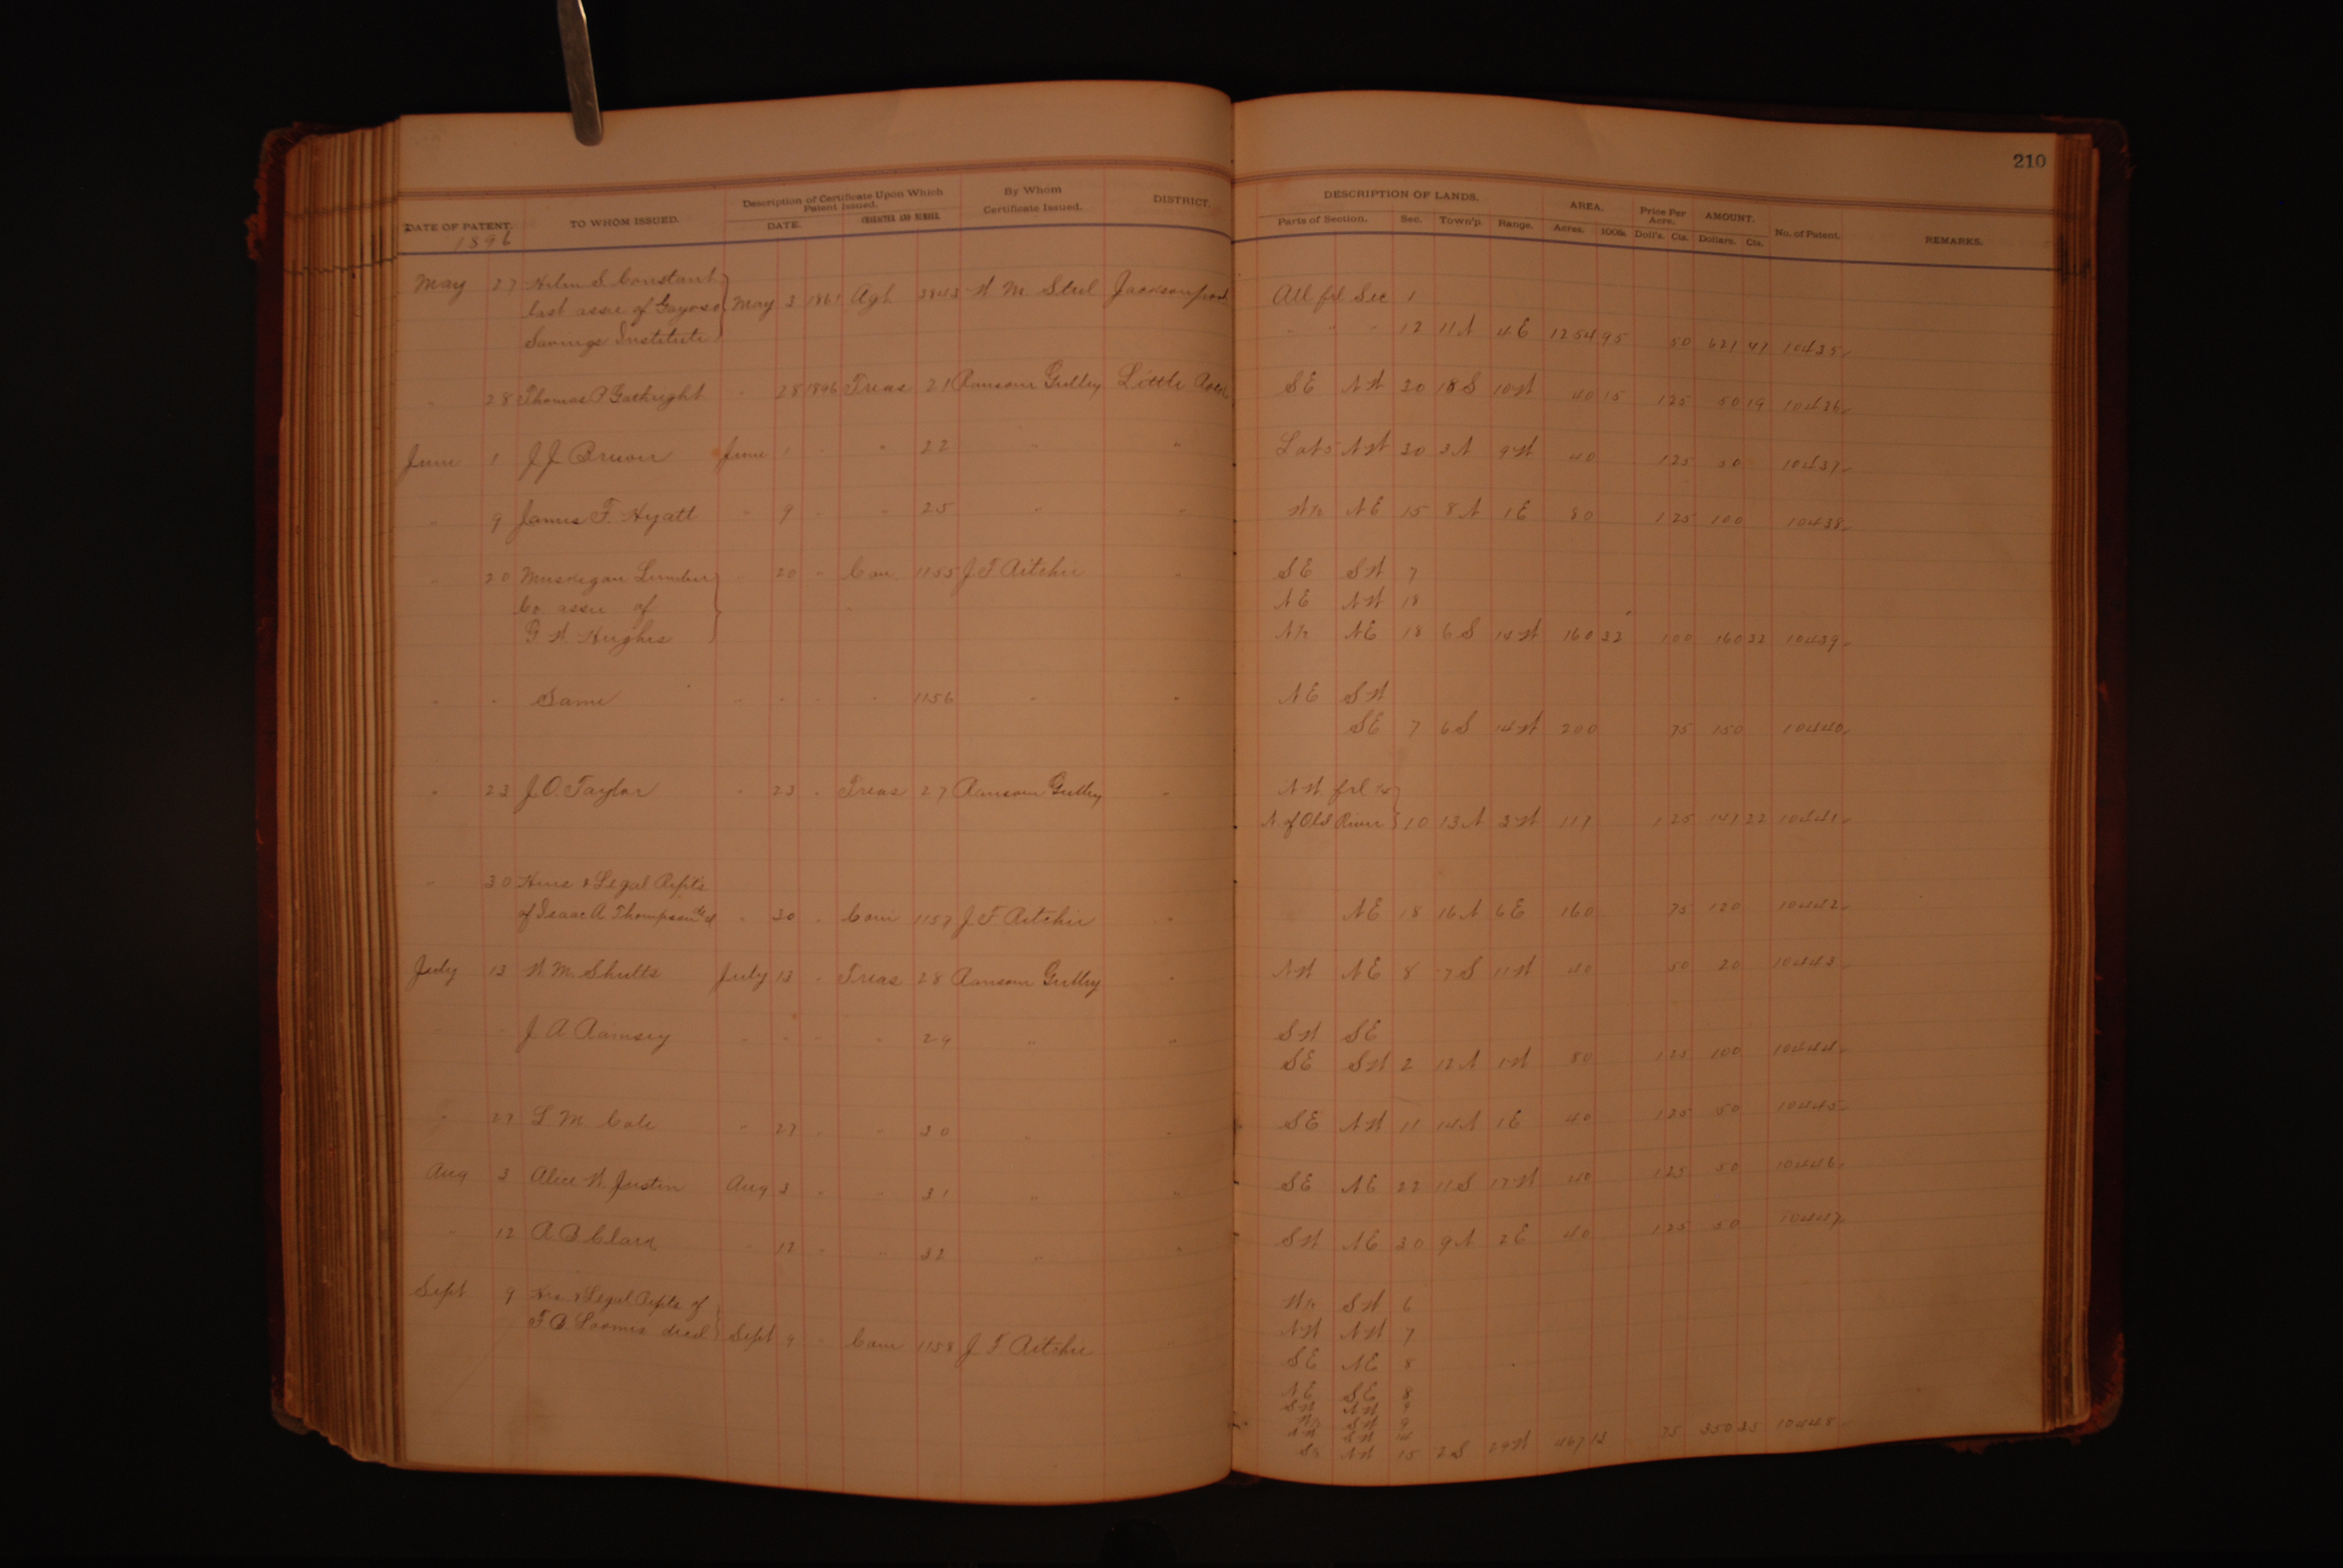 210
DATE OF PATENT. TO WHOM ISSUED. Description of Certificate Upon Which Patent Issued. DATE. CHARACTER AND NUMBER. By Whom Certificate Issued. DISTRICT. DESCRIPTION OF LANDS. Parts of Section. Sec. Town'p. Range. AREA. Acres. 100ths. Price Per Acre. Doll's. Cts. AMOUNT. Dollars. Cts. No. of Patent. REMARKS.
1896
May 27 Helen S. Constant May 3 1861 Agl 3843 W. M. Steel Jacksonport All frl Sec 1
last assee of Gayoso " " " 12 11 N 4 E 1254 95 50 627 47 10435
Savings Institute
" 28 Thomas P Gathright " 28 1896 Treas 21 Ransom Gulley Little Rock SE NW 30 18 S 10 W 40 15 1 25 50 19 10436
June 1 J J Bruon June 1 " " 22 " " Lot 5 NW 30 3 N 9 W 40 1 25 50 10437
" 9 James F. Hyatt " 9 " " 25 " " W½ NE 15 8 N 1 E 80 1 25 100 10438
" 20 Muskegan Lumber " 20 " Com 1155 J F Ritchie " SE SW 7
Co. assee of NE NW 18
G W. Hughes N½ NE 18 6 S 14 W 160 32 1 00 160 32 10439
" " Same " " " " 1156 " " NE SW
SE 7 6 S 14 W 200 75 150 10440
" 23 J. O. Taylor " 23 " Treas 27 Ransom Gulley " NW frl ¼
N. of Old River 10 13 N 3 W 117 1 25 147 22 10441
" 30 Heirs & Legal Repts
of Isaac A Thompson decd " 30 " Com 1157 J F Ritchie " NE 18 16 N 6 E 160 75 120 10442
July 13 W. M. Shults July 13 " Treas 28 Ransom Gulley " NW NE 8 7 S 11 W 40 50 20 10443
" " J A Ramsey " " " " 29 " " SW SE
SE SW 2 12 N 1 W 80 1 25 100 10444
" 27 L M Cole " 27 " " 30 " " SE NW 11 14 N 1 E 40 1 25 50 10445
Aug 3 Alice W. Justin Aug 3 " " 31 " " SE NE 22 11 S 17 W 40 1 25 50 10446
" 12 A B Clark " 12 " " 32 " " SW NE 30 9 N 2 E 40 1 25 50 10447
Sept 9 Hrs & Legal Repts of W½ SW 6
F B Loomis decd Sept 9 " Com 1158 J F Ritchie " NW NW 7
SE NE 8
NE SE 8
SW NW 9
W½ SW 9
NW SW 14
S½ NW 15 2 S 29 W 467 13 75 350 35 10448